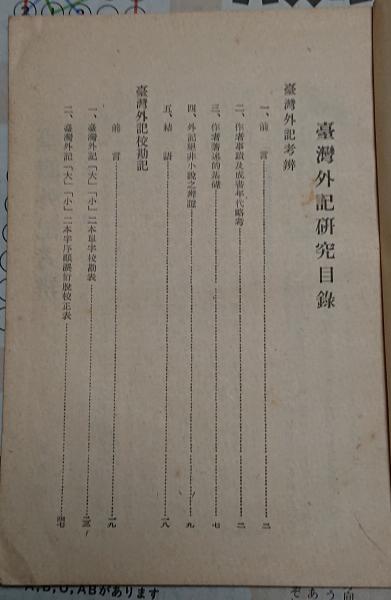 臺灣外記研究目錄
臺灣外記考辨
一、前言……二
二、作者事蹟及成書年代略考……二
三、作者著述的基礎……七
四、外記絕非小說之辨證……九
五、結語……一八
臺灣外記校勘記
前言……一九
一、臺灣外記「大」「小」二本單字校勘表……二三
二、臺灣外記「大」「小」二本字序顛誤衍脫校正表……四七
A,B,O,ABがあります